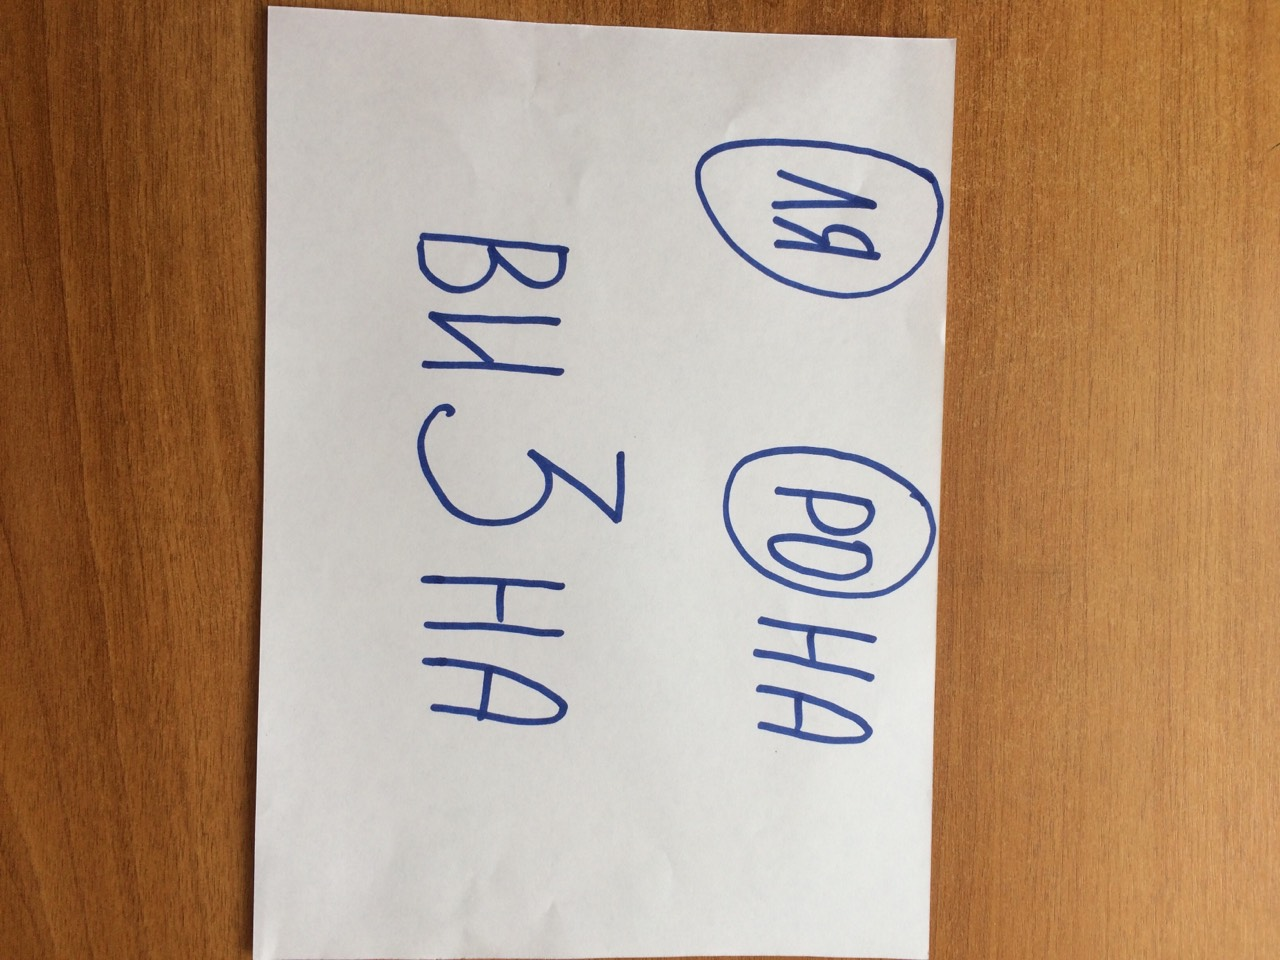 ЛЯ РОНА
ВИ3НА